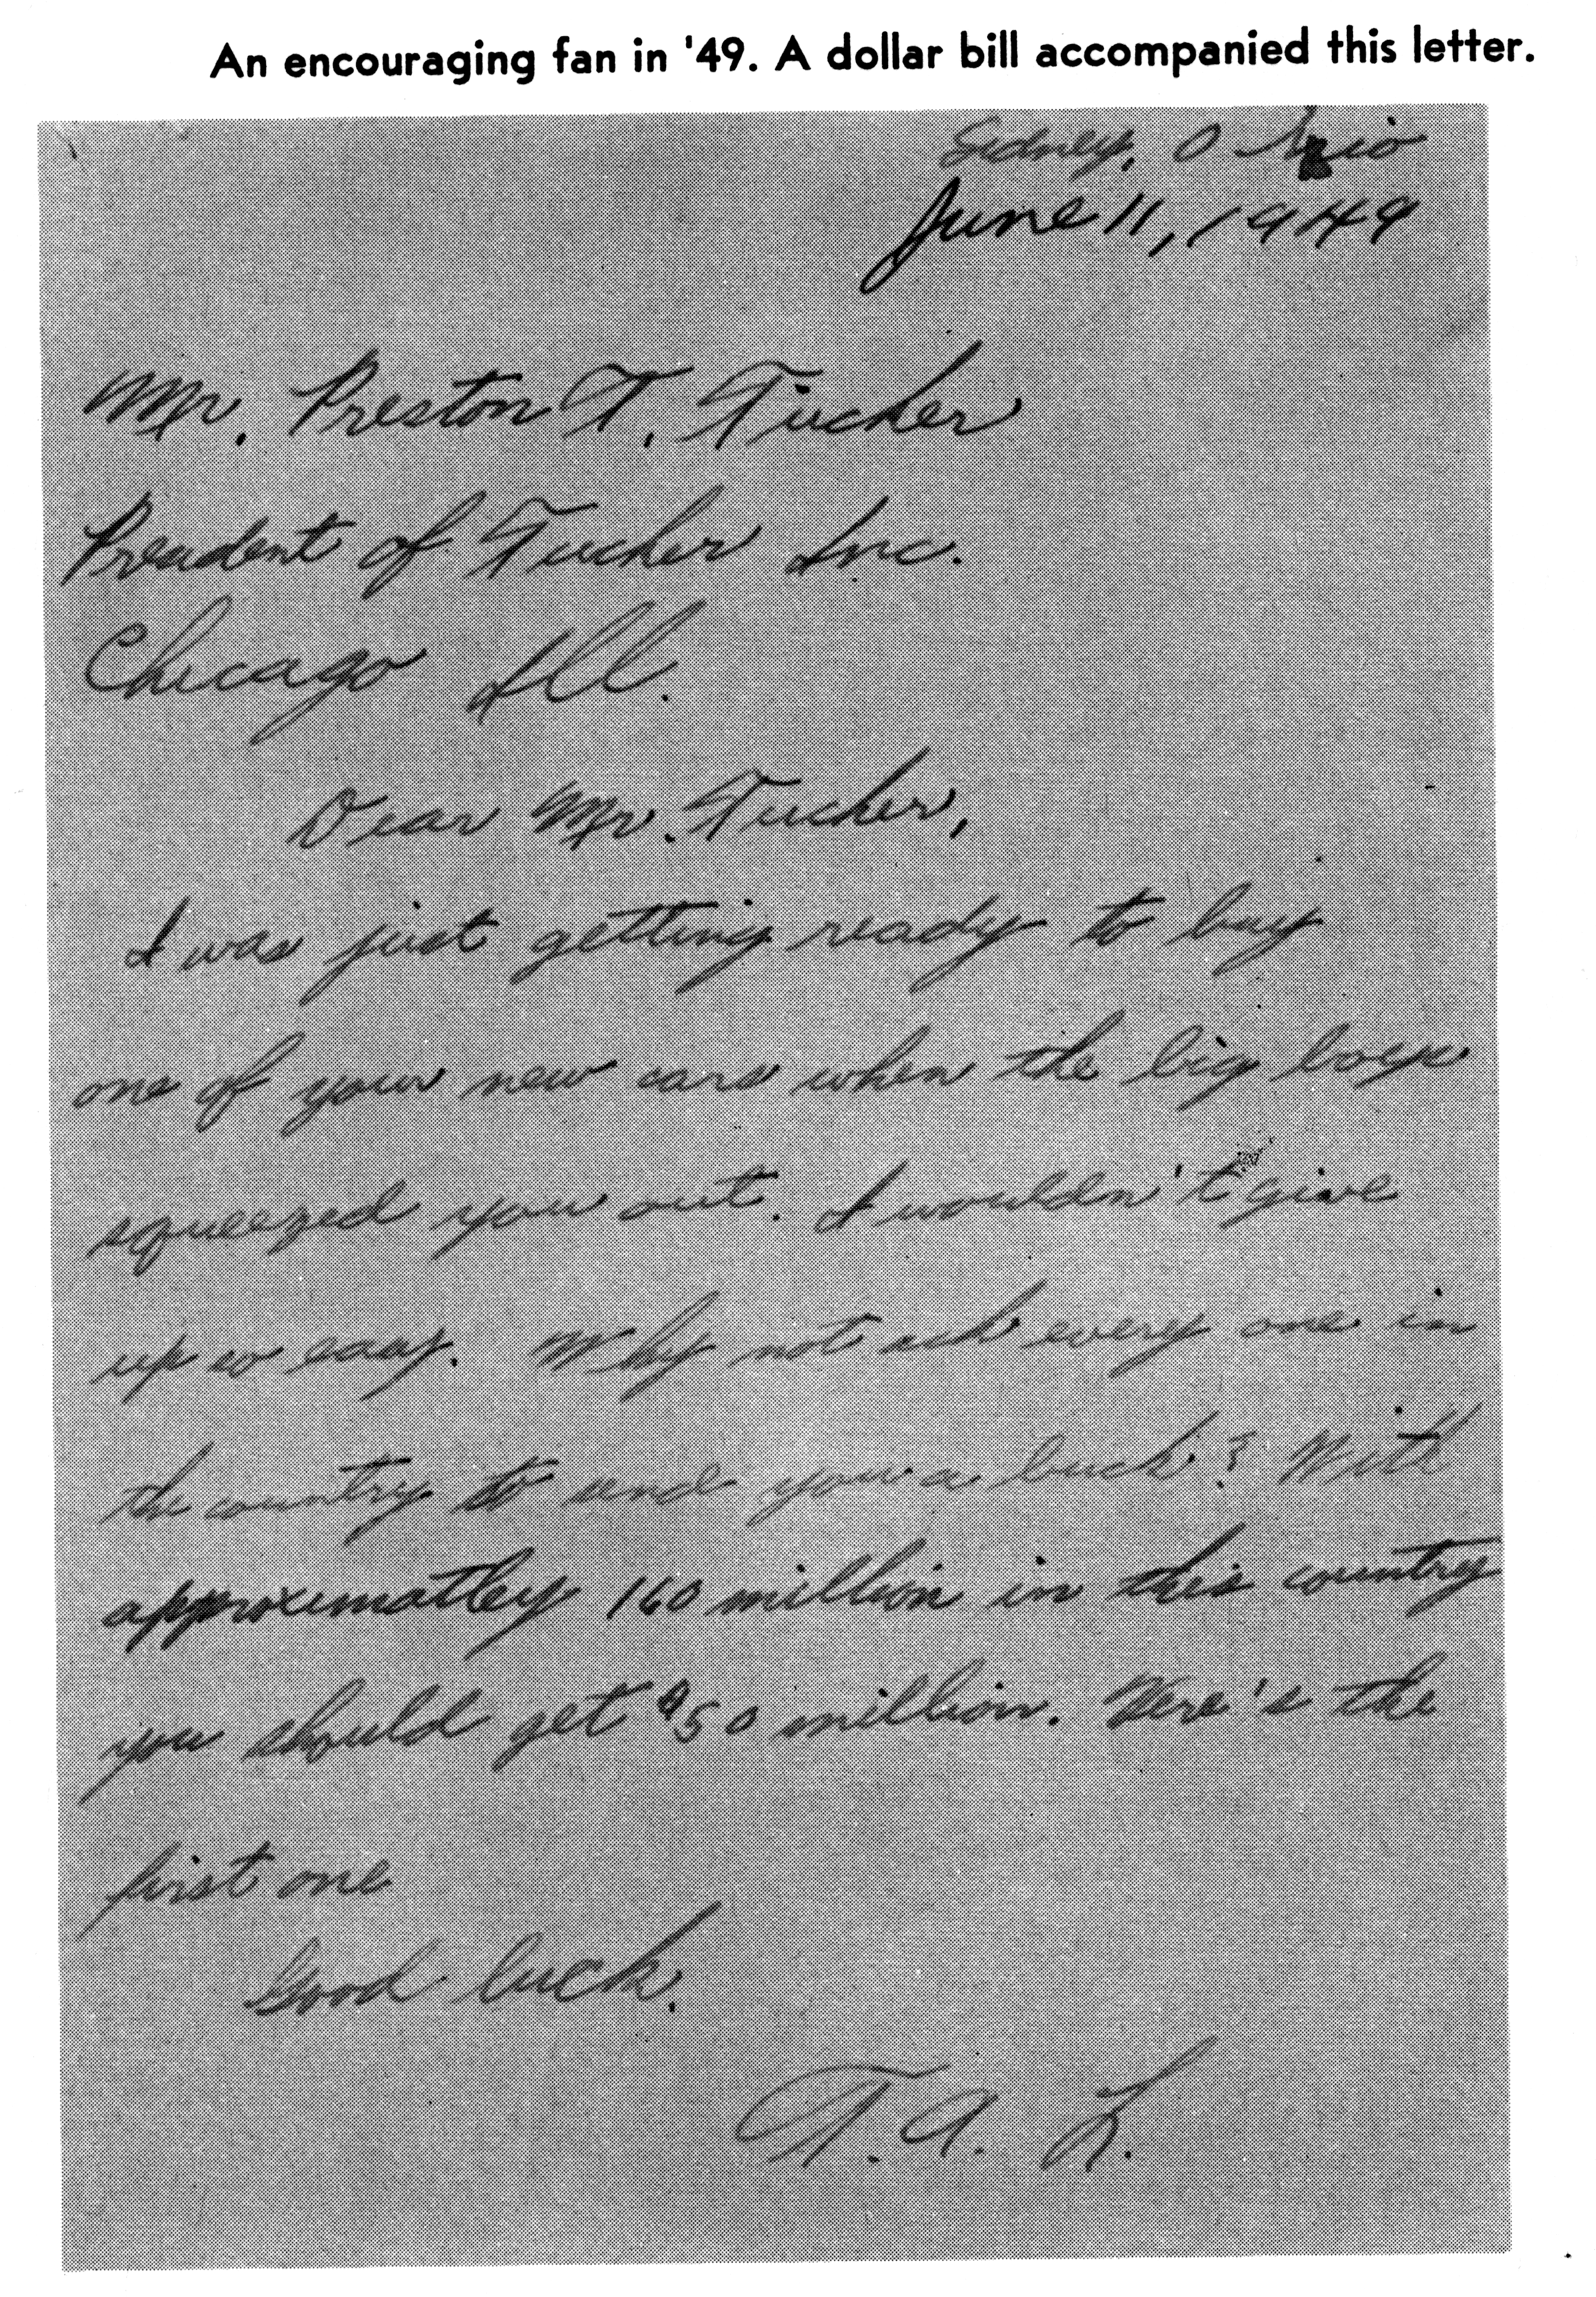 An encouraging fan in '49. A dollar bill accompanied this letter.
Sidney, Ohio
June 11, 1949
Mr. Preston T. Tucker
President of Tucker Inc.
Chicago Ill.
Dear Mr. Tucker,
I was just getting ready to buy
one of your new cars when the big boys
squeezed you out. I wouldn't give
up so easy. Why not ask every one in
the country to send you a buck? With
approximatley 160 million in this country
you should get $50 million. Here's the
first one
Good luck,
T. A. L.